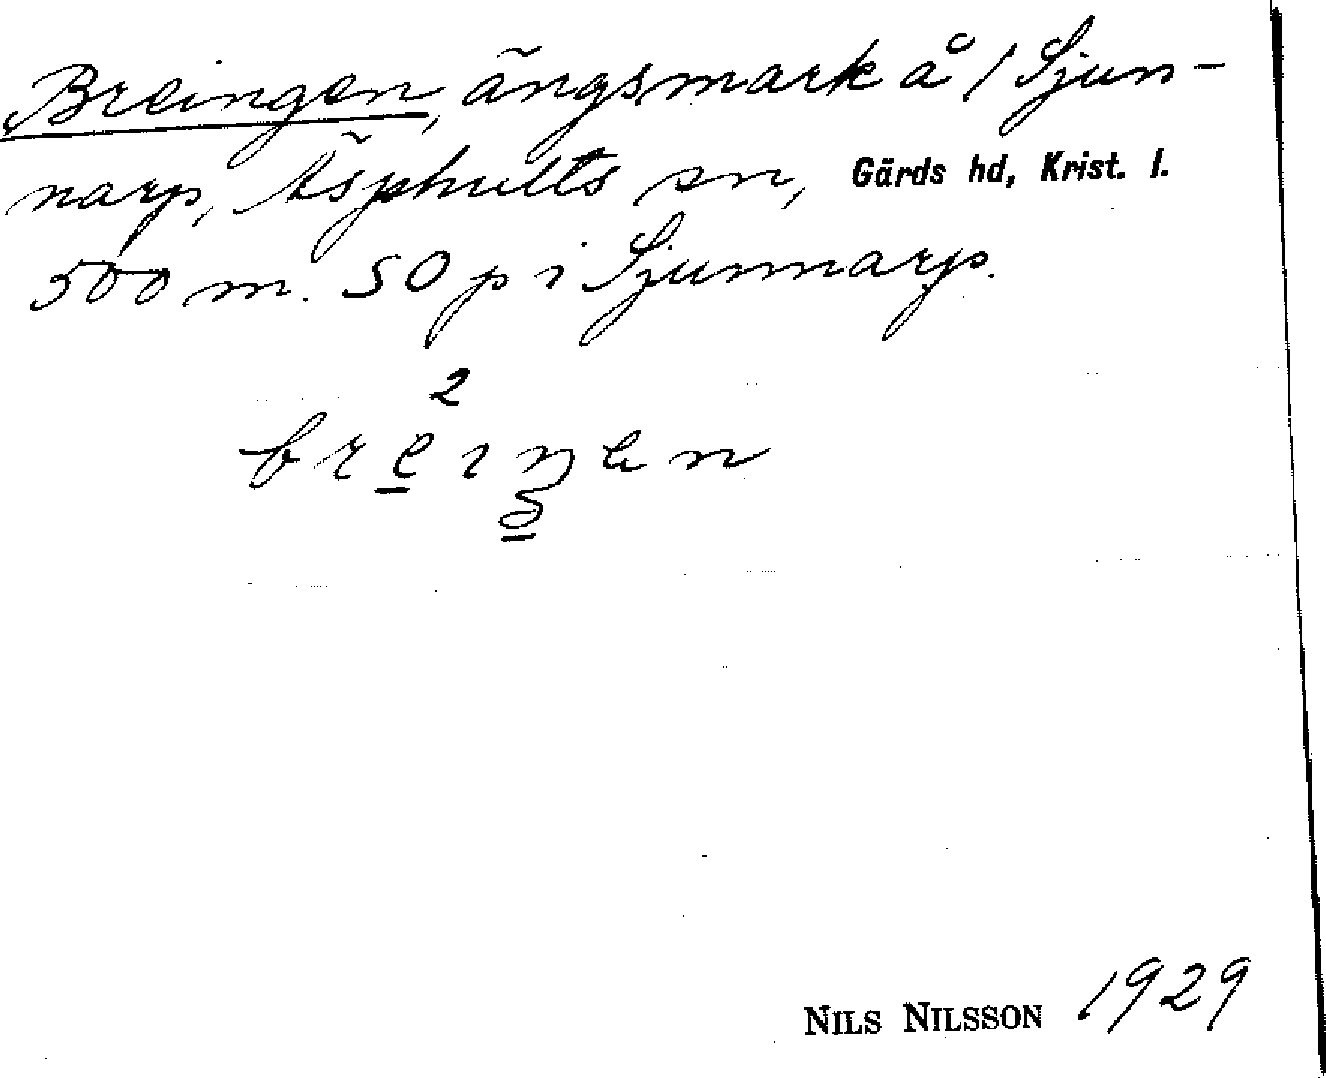 Breingen, ängsmark å 1 Sjun-
narp, Äsphults sn, Gärds hd, Krist. l.
500 m. SO p i Sjunnarp.
2
breıŋen
NILS NILSSON 1929